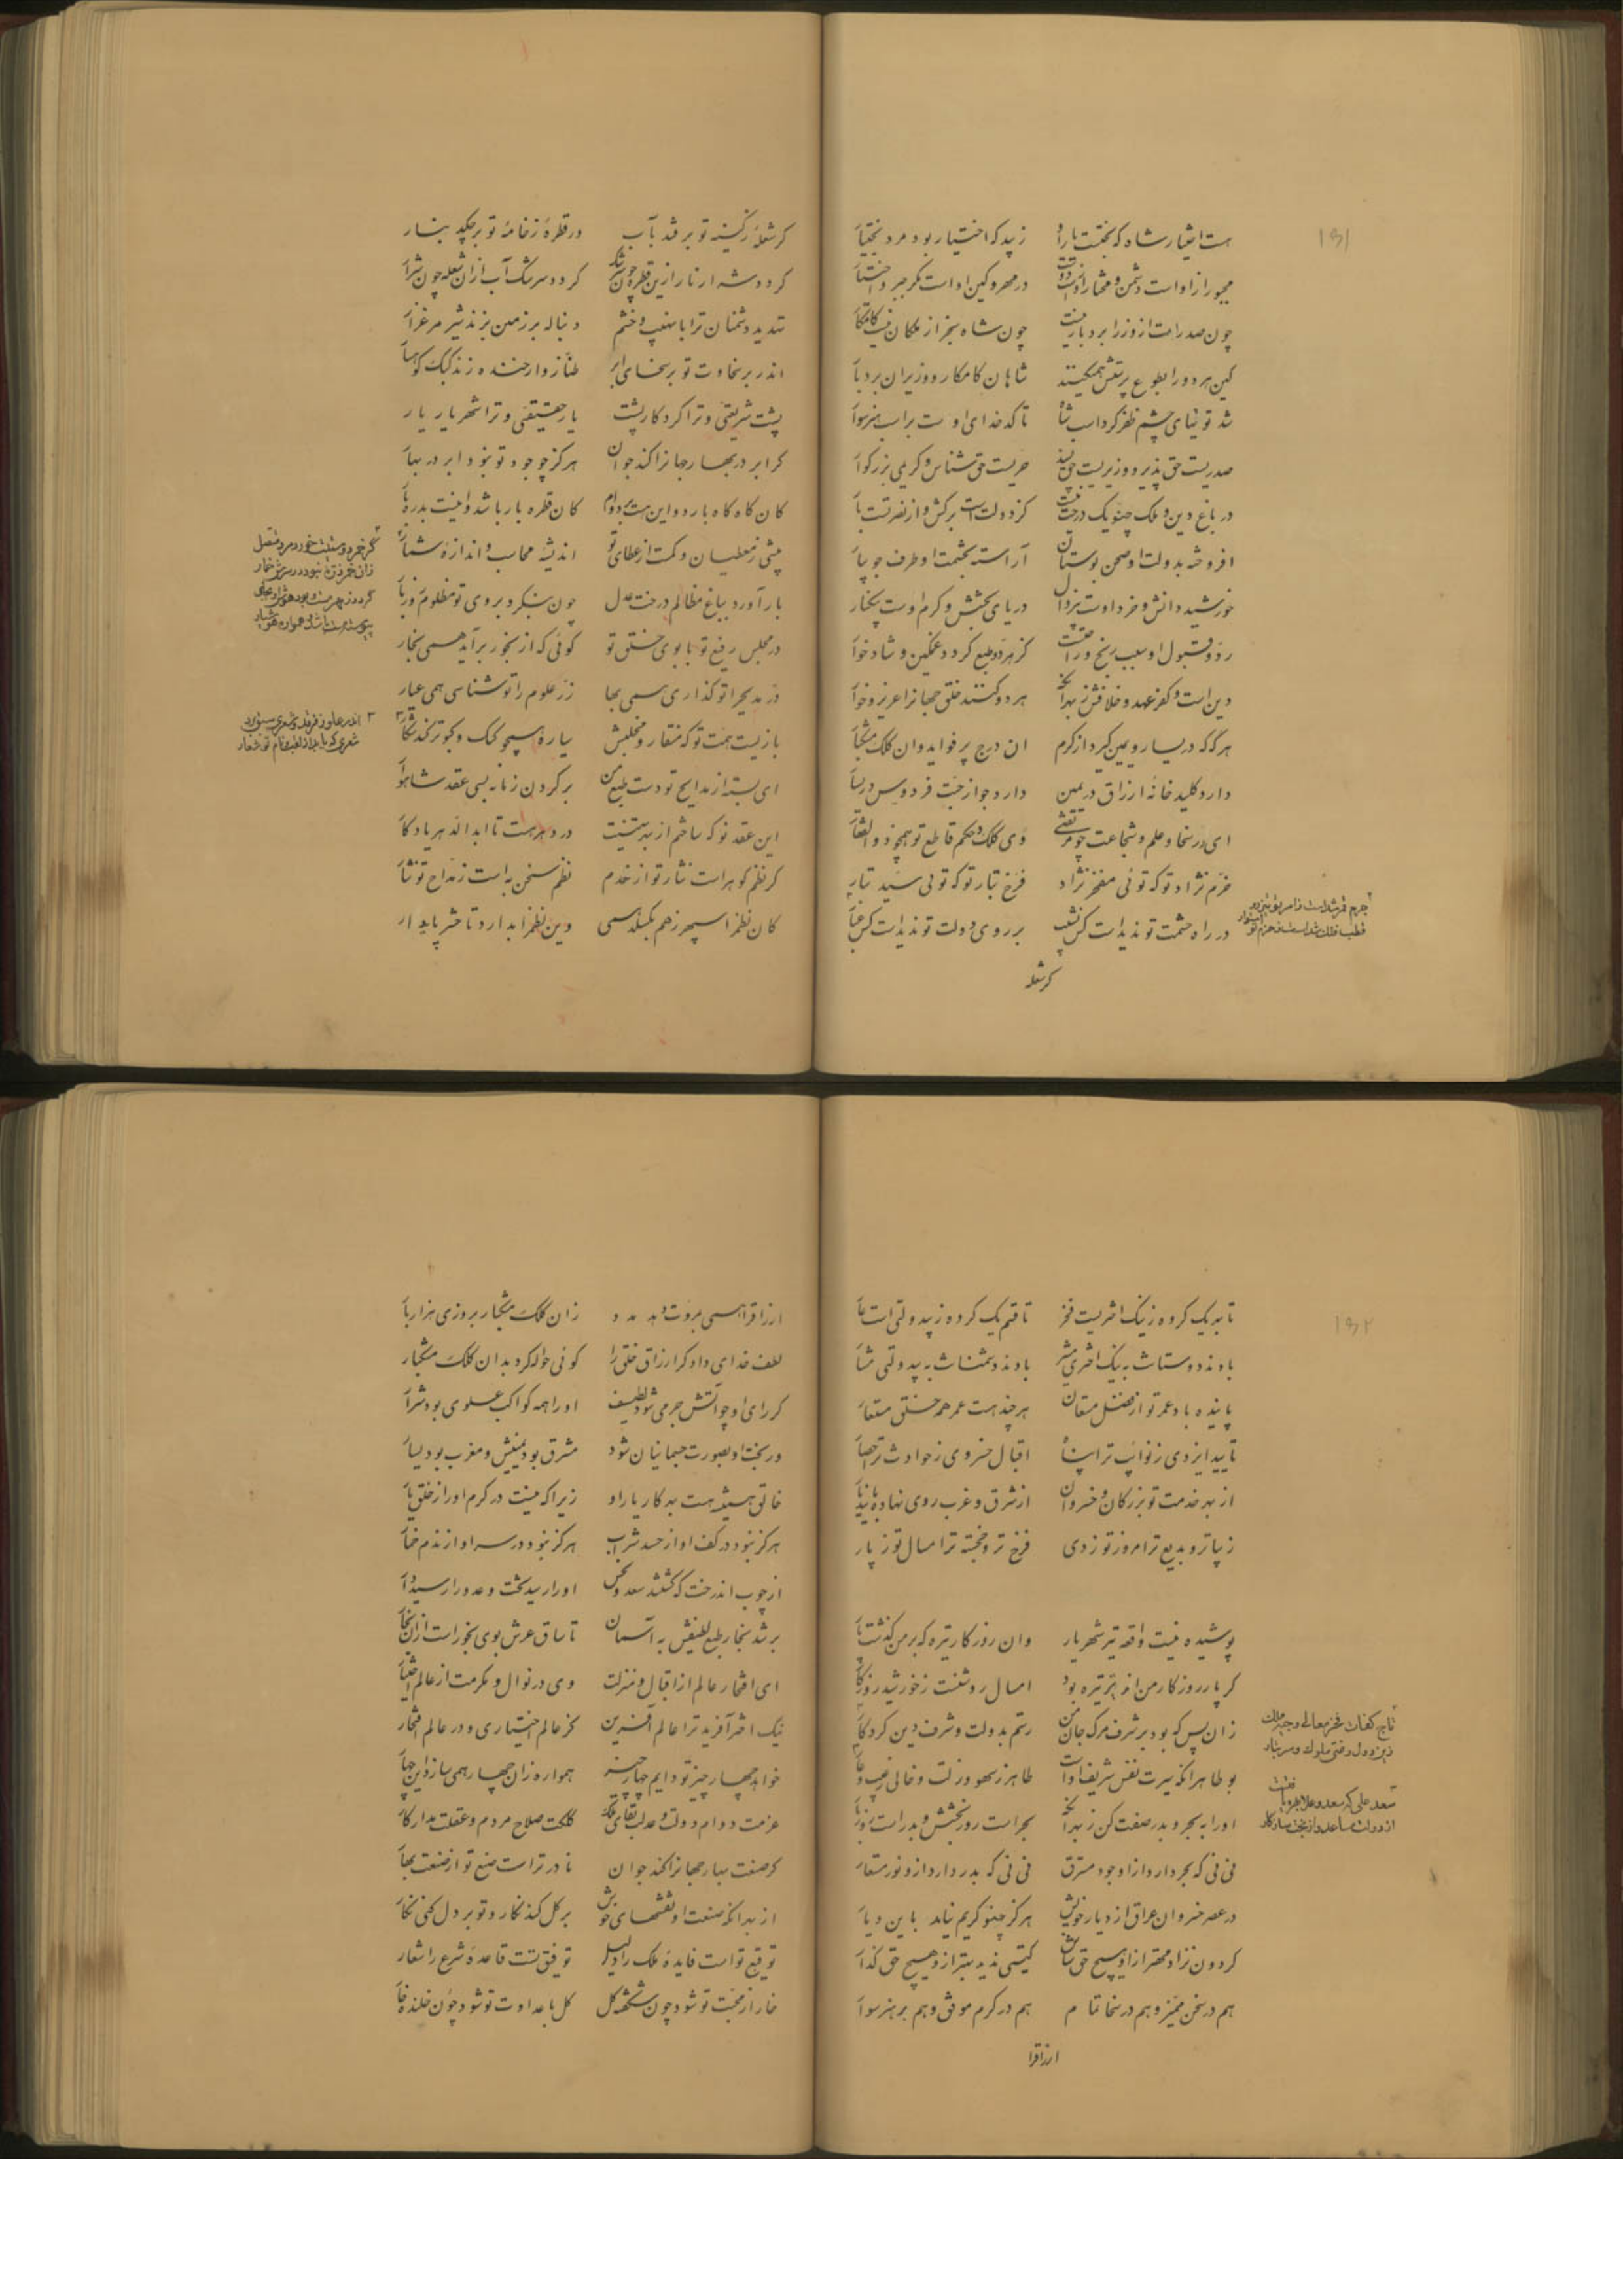 ۱۵۱
هست اختیار شاه که بختست یار او زیبد که اختیار بود مرد بختیار
مجبور ازاو است دشمن و مختار ازو است دوست در مهر و کین او است مگر جبر و اختیار
چون صدر امت از وزرا بردبار نیست چون شاه سنجر از ملکان نیست کامکار
کین هر دو را بطوع پرستش همیکنند شاهان کامکار و وزیران بردبار
شد توتیای چشم ظفر گرد اسب شاه تا کدخدای او است براسب هنر سوار
صدریست حق پذیر و وزیریست حق پسند حریست حق شناس و کریمی بزرگوار
در باغ دین و ملک چنو یک درخت نیست کز دولت است برگش و از نصرتست بار
افروخته بدولت او صحن بوستان آراسته بحشمت او طرف جویبار
خورشید دانش و خرد اوست بیزوال دریای بخشش و کرم اوست بیکنار
رد و قبول او سبب رنج و راحتست کز هر دو طبع گردد غمگین و شادخوار
دین است و کفر عهد و خلافش ز بهر آنک هر دو کنند خلق جهانرا عزیز و خوار
هرگه که در یسار و یمین گیرد از کرم ان درج پر فواید وان کلک مشکبار
دارد کلید خانهٔ ارزاق در یمین دارد جواز جنت فردوس در یسار
ای در سخا و علم و شجاعت چو مرتضی وی کلک و حکم قاطع تو همچو ذوالفقار
خرم نژاد تو که توئی مفخر نژاد فرخ تبار تو که توئی سید تبار
در راه حشمت تو ندیدست کس نشیب بر روی دولت تو ندیدست کس غبار
جرم قمر شداست ز امر تو تیزرو
قطب فلک شداست ز حزم تو استوار
گر شعله
گر شعلهٔ ز کینهٔ تو بر فتد بآب ور قطرهٔ ز خامهٔ تو بر چکد بنار
گردد شرار نار ازین قطره چون سرشک گردد سرشک آب از ان شعله چون شرار
تهدید دشمنان ترا با نهیب و خشم دنباله بر زمین بزند شیر مرغزار
اندر بر سخاوت تو بر سخای ابر طناز وار خنده زند کبک کوهسار
پشت شریعتی و ترا کردگار پشت یار حقیقتی و ترا شهریار یار
گر ابر در بهار جهانرا کند جوان هرگز چو جود تو نبود ابر در بهار
کان گاه گاه بارد و این هست بر دوام کان قطره بار باشد و اینست بدره بار
بیشی ز معطیان و کمست از عطای تو اندیشهٔ محاسب و اندازهٔ شمار
بار آورد بباغ مظالم درخت عدل چون بنگرد بروی تو مظلوم روز بار
در مجلس رفیع تو با بوی خلق تو گوئی که از بخور برآید همی بخار
در مدیح را تو گذاری همی بها زر علوم را تو شناسی همی عیار
بازیست همت تو که منقار و مخلبش سیاره همچو کبک و کبوتر کند شکار
ای بسته از مدایح تو دست طبع من بر گردن زمانه بسی عقد شاهوار
این عقد نو که ساختم از بهر تهنیت در دهر هست تا ابد الدهر یادگار
گر نظم گوهر است نثار تو از خدم نظم سخن به است ز مداح تو نثار
کان نظم را سپهر ز هم بگسلد همی وین نظم را بدارد تا حشر پایدار
۱۵۲
تا بهر یک گروه ز نیک اختریست فخر تا قسم یک گروه ز بیدولتی است عار
بادند دوستانت به نیک اختری مشیر بادند دشمنانت به بیدولتی مشار
پاینده باد عمر تو از فضل مستعان هر چند هست عمر همه خلق مستعار
تایید ایزدی ز نوائب ترا پناه اقبال خسروی ز حوادث ترا حصار
از بهر خدمت تو بزرگان و خسروان از شرق و غرب روی نهاده بدین دیار
زیباتر و بدیع ترامروز تو ز دی فرخ تر و خجسته ترامسال تو ز پار
پوشیده نیست واقعه تیر شهریار وان روزگار تیره که بر من گذشت پار
گر پار روزگار من از تیر تیره بود امسال روشنست ز خورشید روزگار
زان پس که بود بر شرف مرگ جان من رستم بدولت و شرف دین کردگار
تاج کفات فخر معالی وجیه ملک
زین دول رضی ملوک و سر تبار
بو طاهر انکه سیرت نفس شریف او است طاهر ز سهو و زلت و خالی ز عیب و عار
سعد علی که سعد و علا بهر ذات
از دولت مساعد و از بخت سازگار
او را به بحر و بدر صفت کن ز بهر آنک بحر است روز بخشش و بدر است روز بار
نی نی که بحر دارد از او جود مسترق نی نی که بدر دارد ازو نور مستعار
در عصر خسروان عراق از دیار خویش هرگز چنو کریم نیامد باین دیار
گردون نزاد محترازاو هیچ حق شناس گیتی ندید بهتر ازو هیچ حق گذار
هم در سخن ممیز و هم در سخا تمام هم در کرم موفق و هم بر هنر سوار
ارزاق را
ارزاق را همی مروت دهد مدد زان کلک مشکبار بروزی هزار بار
لطف خدای دادگر ارزاق خلق را گوئی حواله کرد بدان کلک مشکبار
گر رای او چو آتش جرمی شود لطیف او را همه کواکب علوی بود شرار
ور بخت او بصورت جسمانیان شود مشرق بود یمینش و مغرب بود یسار
خالق همیشه هست بهر کار یار او زیرا که نیست در کرم او را ز خلق یار
هرگز نبود در کف او از حسد شراب هرگز نبود در سر او از ندم خمار
از چوب اندرخت که کشتند سعد و نحس او را رسید تخت و عدو را رسید دار
بر شد بخار طبع لطیفش به آسمان تا ساق عرش بوی بخور است ازان بخار
ای افتخار عالم از اقبال و منزلت وی در نوال و مکرمت از عالم اختیار
نیک اختر آفرید ترا عالم آفرین کز عالم اختیاری و در عالم افتخار
خواهد چهار چیز تو دایم چهار چیز همواره زان چهار همی سازد این چهار
عزمت دوام دولت و عدلت بقای ملک کلکت صلاح مردم و عقلت مدار کار
گر صنعت بهار جهانرا کند جوان نادرتراست صنع تو از صنعت بهار
از بهر انکه صنعت او نقشهای خوش بر گل کند نگار و تو بر دل کنی نگار
توقیع تو است فایدهٔ ملک را دلیل توفیق تست قاعدهٔ شرع را شعار
خار از محبت تو شود چون شکفته گل گل با عداوت تو شود چون خلنده خار